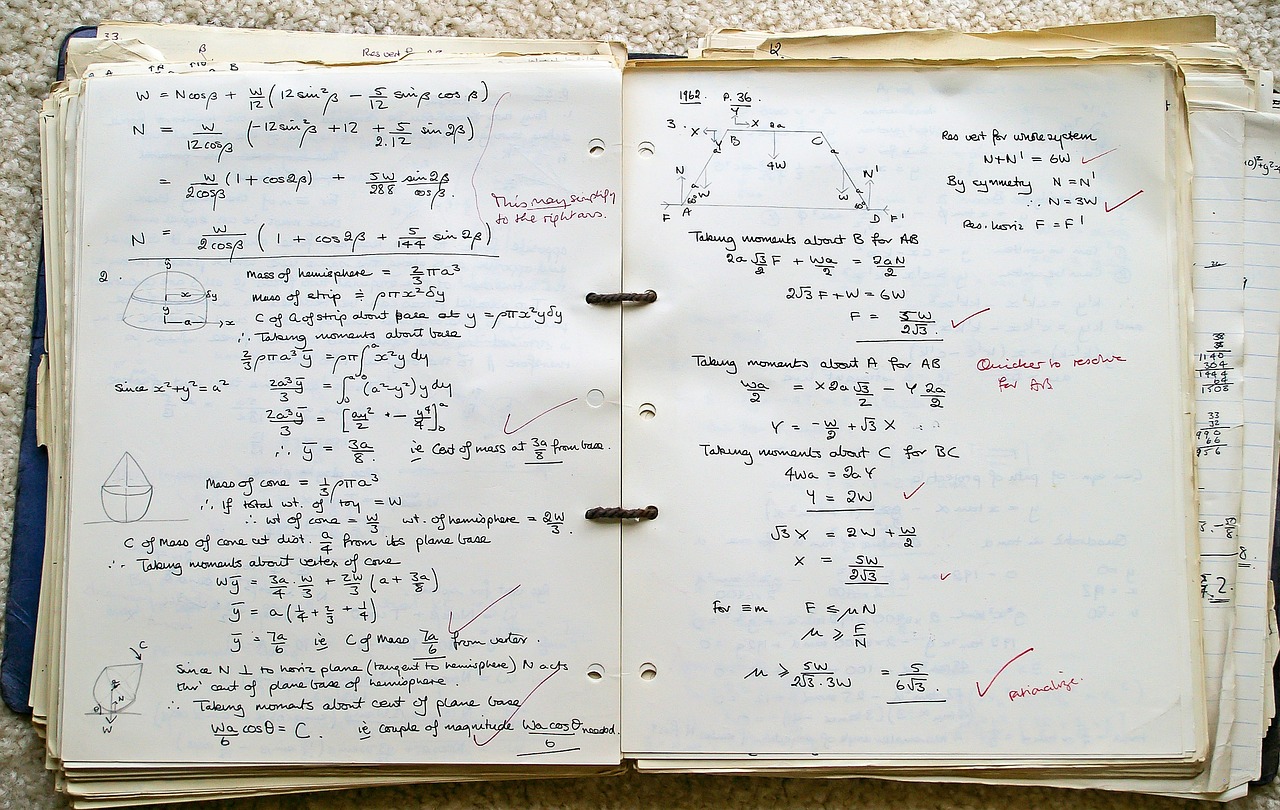 33.
β
Res vert
A
B
W = N cos β + W/12 (12 sin²β − 5/12 sin β cos β)
N = W/12cosβ (−12 sin²β + 12 + 5/2.12 sin 2β)
= W/2cosβ (1 + cos 2β) + 5W/288 sin2β/cosβ.
This may simplify
to the right ans.
N = W/2cosβ (1 + cos 2β + 5/144 sin 2β)
2.
y
x
δy
y
a
x
Mass of hemisphere = 2/3 πa³
Mass of strip ≑ ρπx²δy
C of G of strip about base at y = ρπx²yδy
∴ Taking moments about base
2/3 ρπa³ȳ = ρπ∫₀ᵃ x²y dy
Since x²+y² = a² 2a³ȳ/3 = ∫₀ᵃ (a²−y²) y dy
2a³ȳ/3 = [ay²/2 − y⁴/4]₀ᵃ
∴ ȳ = 3a/8 ie Cent of mass at 3a/8 from base.
Mass of cone = 1/3 ρπa³
∴ If total wt. of toy = W
∴ wt of cone = W/3 wt. of hemisphere = 2W/3.
C of Mass of cone at dist. a/4 from its plane base
∴ Taking moments about vertex of cone
Wȳ = 3a/4 . W/3 + 2W/3 (a + 3a/8)
ȳ = a(1/4 + 2/3 + 1/4)
ȳ = 7a/6 ie C of Mass 7a/6 from vertex.
C
N
θ
W
Since N ⊥ to horiz plane (tangent to hemisphere) N acts
thro' cent of plane base of hemisphere.
∴ Taking moments about cent of plane base
Wa/6 cosθ = C. ie couple of magnitude Wa cosθ/6 needed.
1962. P. 36.
3.
Y
X
X
2a
B
C
Y
a
a
4W
N
N'
a
a
W
W
60°
60°
F
A
D
F'
Res vert for whole system
N+N' = 6W
By symmetry N = N'
∴ N = 3W
Res. horiz F = F'
Taking moments about B for AB
2a √3/2 F + Wa/2 = 2aN/2
2√3 F + W = 6W
F = 5W/2√3.
Taking moments about A for AB
Quicker to resolve
for AB
Wa/2 = X 2a √3/2 − Y 2a/2
Y = −W/2 + √3 X
Taking moments about C for BC
4Wa = 2aY
Y = 2W
√3 X = 2W + W/2
X = 5W/2√3
For ≡m F ≤ μN
μ ≥ F/N
μ ≥ 5W/2√3.3W = 5/6√3.
rationalize.
38
38
1140
304
1444
64
1508
33
32
990
66
956